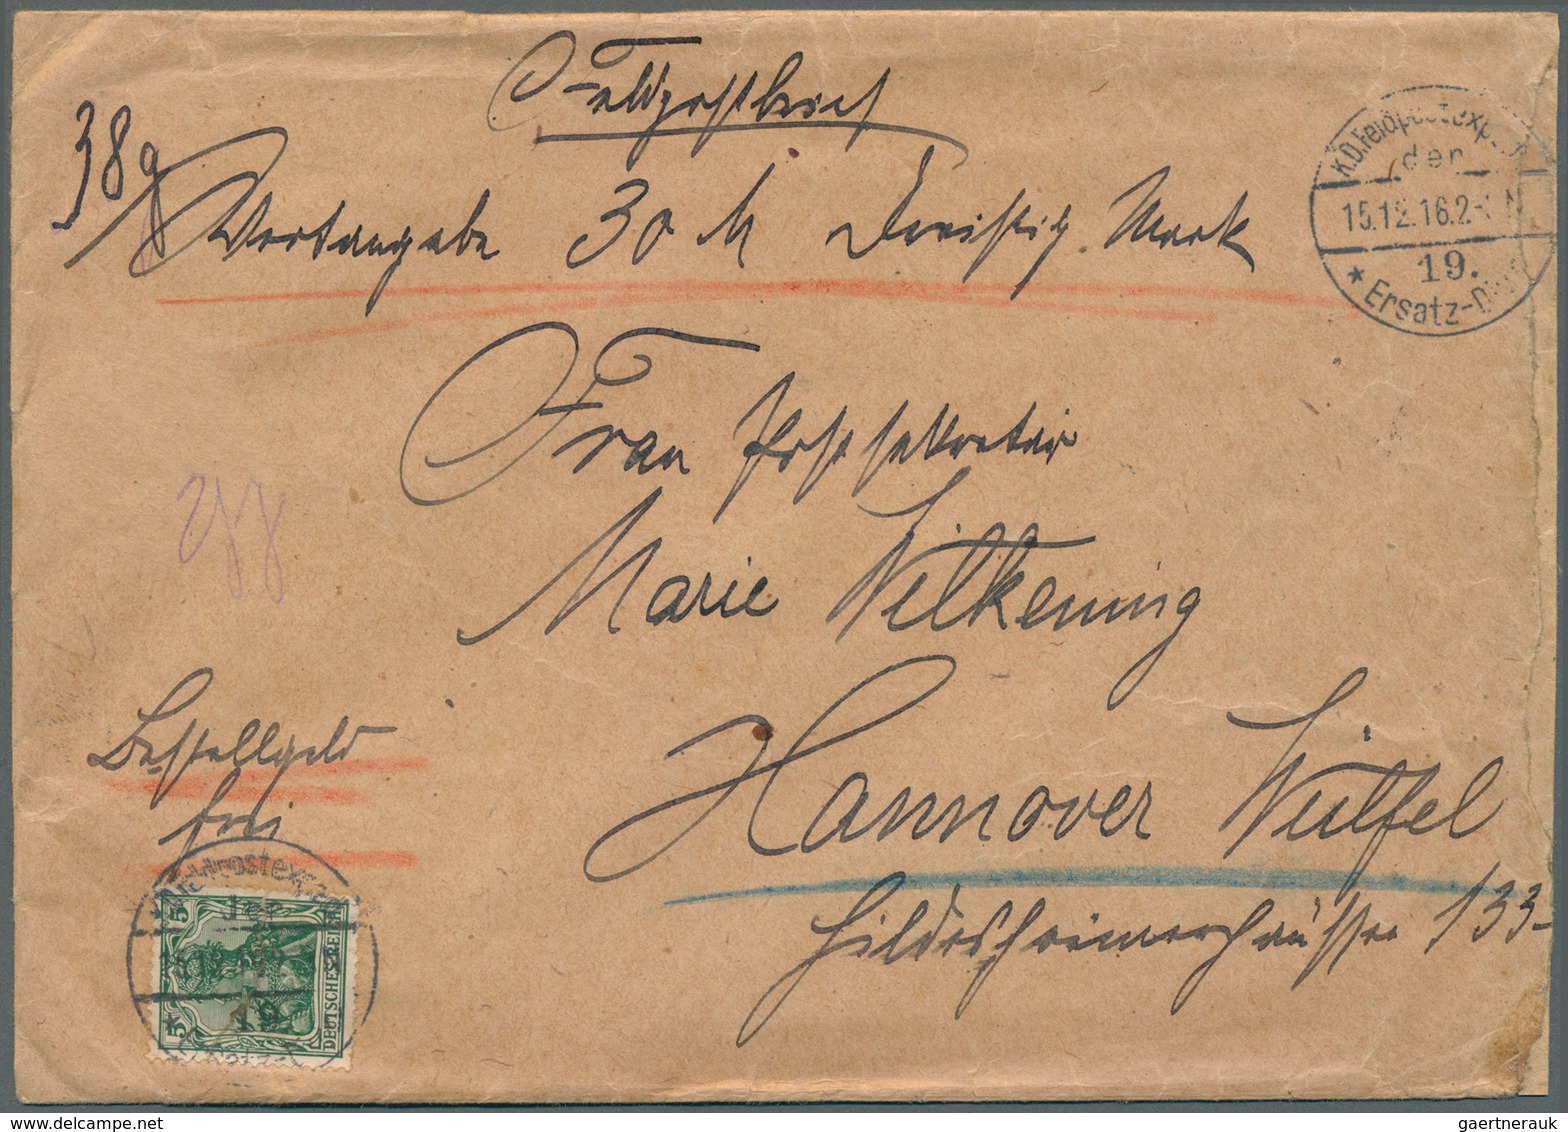 Feldpostbrief
38 g
Wertangabe 30 M Dreißig Mark
K.D. Feldpostexp.
der
15.12.16.2-
19.
* Ersatz-Div.
Frau Postsekretär
Marie Wilkening
Bestellgeld
frei
Hannover Wülfel
Hildesheimerchaussee 133
der
19
5
5
DEUTSCHES REICH
gaertnerauk